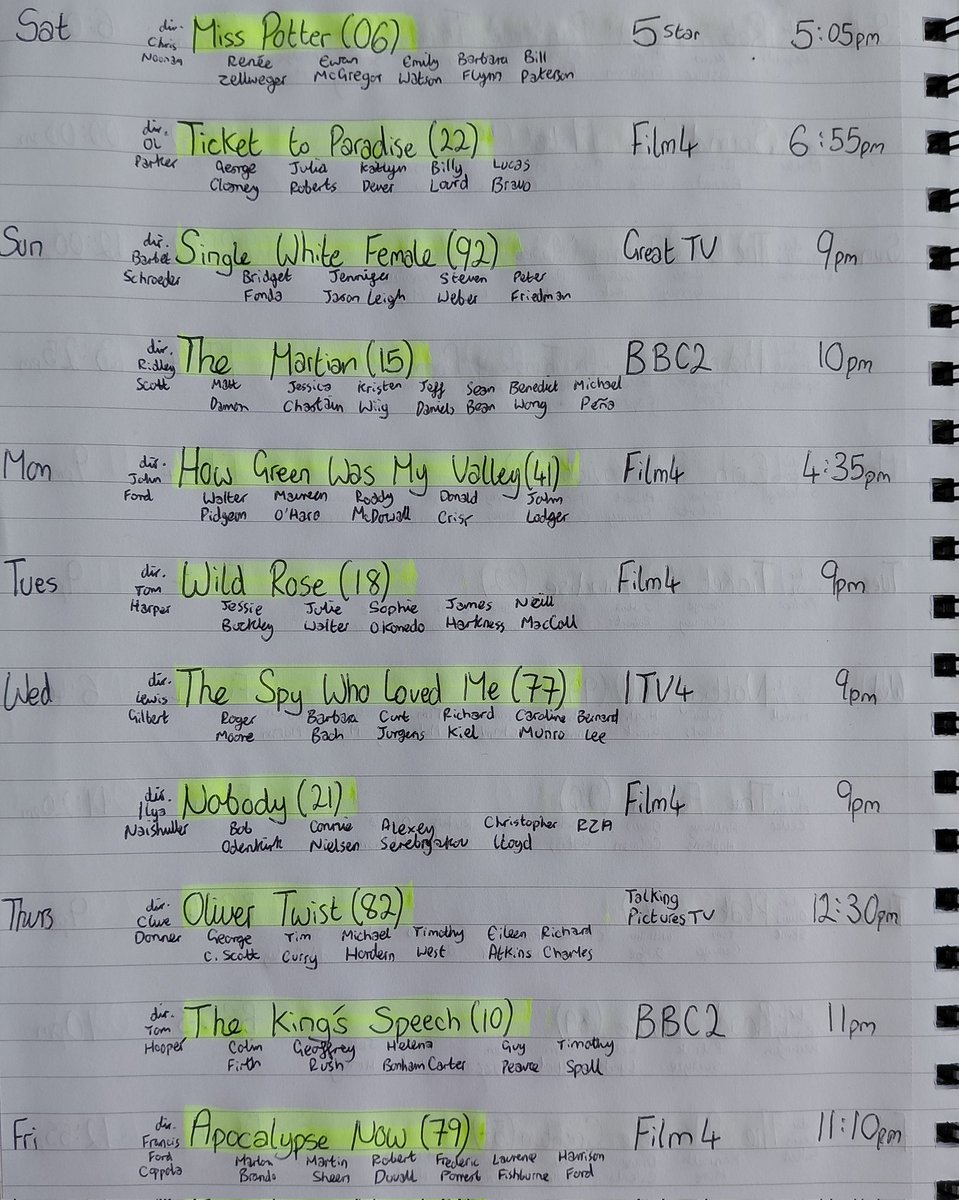 Sat dir. Miss Potter (06) 5 Star 5:05pm
Chris
Noonan Renée Ewan Emily Barbara Bill
Zellweger McGregor Watson Flynn Paterson
dir. Ticket to Paradise (22) Film4 6:55pm
OL
Parker George Julia Kaitlyn Billy Lucas
Clooney Roberts Dever Lourd Bravo
Sun dir. Single White Female (92) Great TV 9pm
Barbet
Schroeder Bridget Jennifer Steven Peter
Fonda Jason Leigh Weber Friedman
dir. The Martian (15) BBC2 10pm
Ridley
Scott Matt Jessica Kristen Jeff Sean Benedict Michael
Damon Chastain Wiig Daniels Bean Wong Peña
Mon dir. How Green Was My Valley (41) Film4 4:35pm
John
Ford Walter Maureen Roddy Donald John
Pidgeon O'Hara McDowall Crisp Lodger
Tues dir. Wild Rose (18) Film4 9pm
Tom
Harper Jessie Julie Sophie James Neill
Buckley Walter Okonedo Harkness MacColl
Wed dir. The Spy Who Loved Me (77) ITV4 9pm
Lewis
Gilbert Roger Barbara Curt Richard Caroline Bernard
Moore Bach Jurgens Kiel Munro Lee
dir. Nobody (21) Film4 9pm
Ilya
Naishuller Bob Connie Alexey Christopher RZA
Odenkirk Nielsen Serebryakov Lloyd
Thurs dir. Oliver Twist (82) Talking Pictures TV 12:30pm
Clive
Donner George Tim Michael Timothy Eileen Richard
C. Scott Curry Hordern West Atkins Charles
dir. The King's Speech (10) BBC2 11pm
Tom
Hooper Colin Geoffrey Helena Guy Timothy
Firth Rush Bonham Carter Pearce Spall
Fri dir. Apocalypse Now (79) Film4 11:10pm
Francis
Ford Marlon Martin Robert Frederic Laurence Harrison
Coppola Brando Sheen Duvall Forrest Fishburne Ford